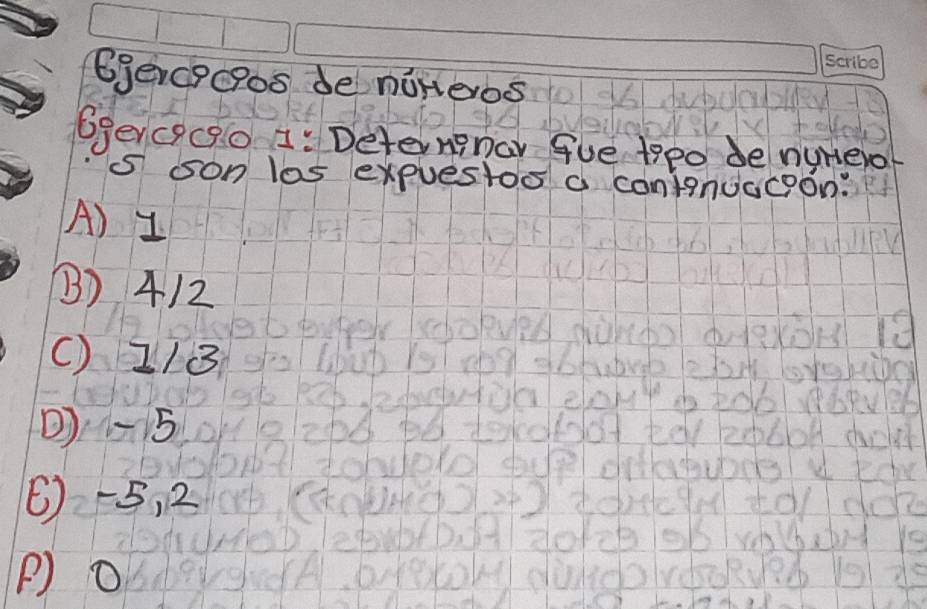 Scribe
Ejercicios de números
Ejercicio 1: Determinar que tipo de numero-
s son los expuestos a continuación:
A) 1
B) 4/2
C) 1/3
D) -5
E) -5,2
F) 0